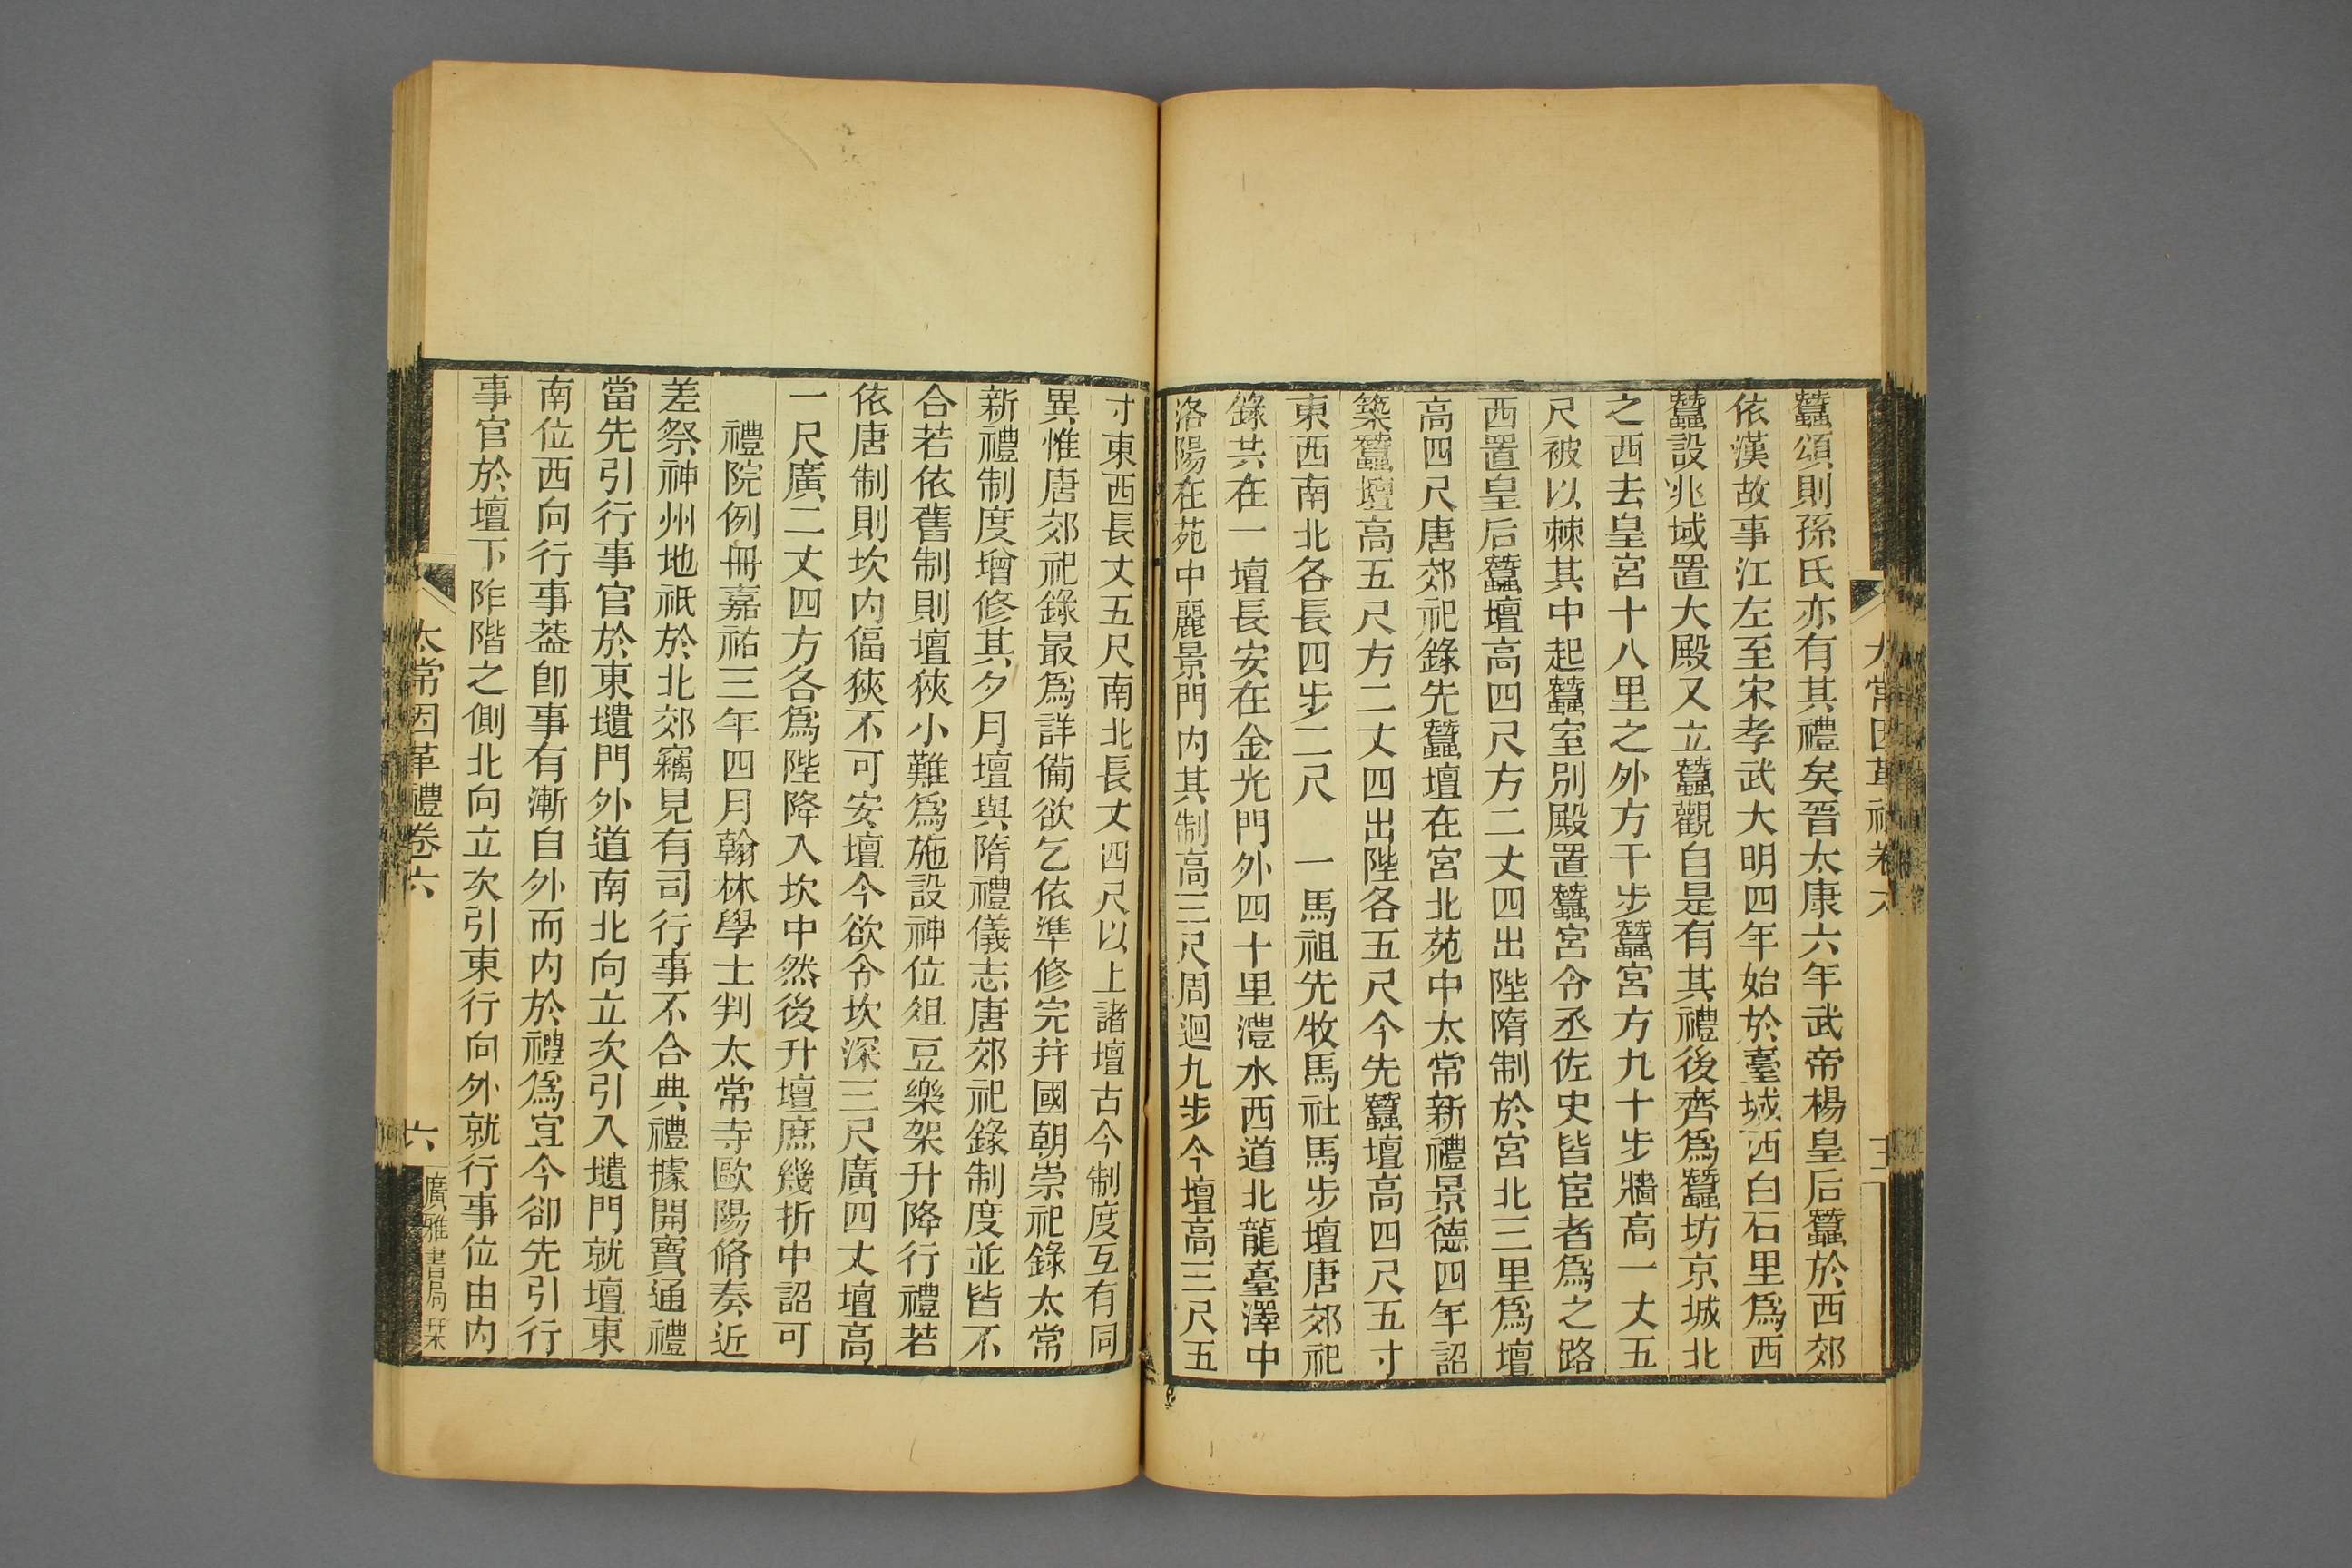 蠶頌則孫氏亦有其禮矣晉太康六年武帝楊皇后蠶於西郊
依漢故事江左至宋孝武大明四年始於臺城西白石里爲西
蠶設兆域置大殿又立蠶觀自是有其禮後齊爲蠶坊京城北
之西去皇宮十八里之外方干步蠶宮方九十步牆高一丈五
尺被以棘其中起蠶室別殿置蠶宮令丞佐史皆宦者爲之路
西置皇后蠶壇高四尺方二丈四出陛隋制於宮北三里爲壇
高四尺唐郊祀錄先蠶壇在宮北苑中太常新禮景德四年詔
築蠶壇高五尺方二丈四出陛各五尺今先蠶壇高四尺五寸
東西南北各長四步二尺　一馬祖先牧馬社馬步壇唐郊祀
錄共在一壇長安在金光門外四十里澧水西道北龍臺澤中
洛陽在苑中麗景門内其制高三尺周迴九步今壇高三尺五
寸東西長丈五尺南北長丈四尺以上諸壇古今制度互有同
異惟唐郊祀錄最爲詳備欲乞依準修完幷國朝崇祀錄太常
新禮制度增修其夕月壇與隋禮儀志唐郊祀錄制度並皆不
合若依舊制則壇狹小難爲施設神位俎豆樂架升降行禮若
依唐制則坎内偪狹不可安壇今欲令坎深三尺廣四丈壇高
一尺廣二丈四方各爲陛降入坎中然後升壇庶幾折中詔可
禮院例冊嘉祐三年四月翰林學士判太常寺歐陽脩奏近
差祭神州地祇於北郊竊見有司行事不合典禮據開寶通禮
當先引行事官於東壝門外道南北向立次引入壝門就壇東
南位西向行事葢卽事有漸自外而内於禮爲宜今卻先引行
事官於壇下阼階之側北向立次引東行向外就行事位由内
太常因革禮卷六
六
廣雅書局栞